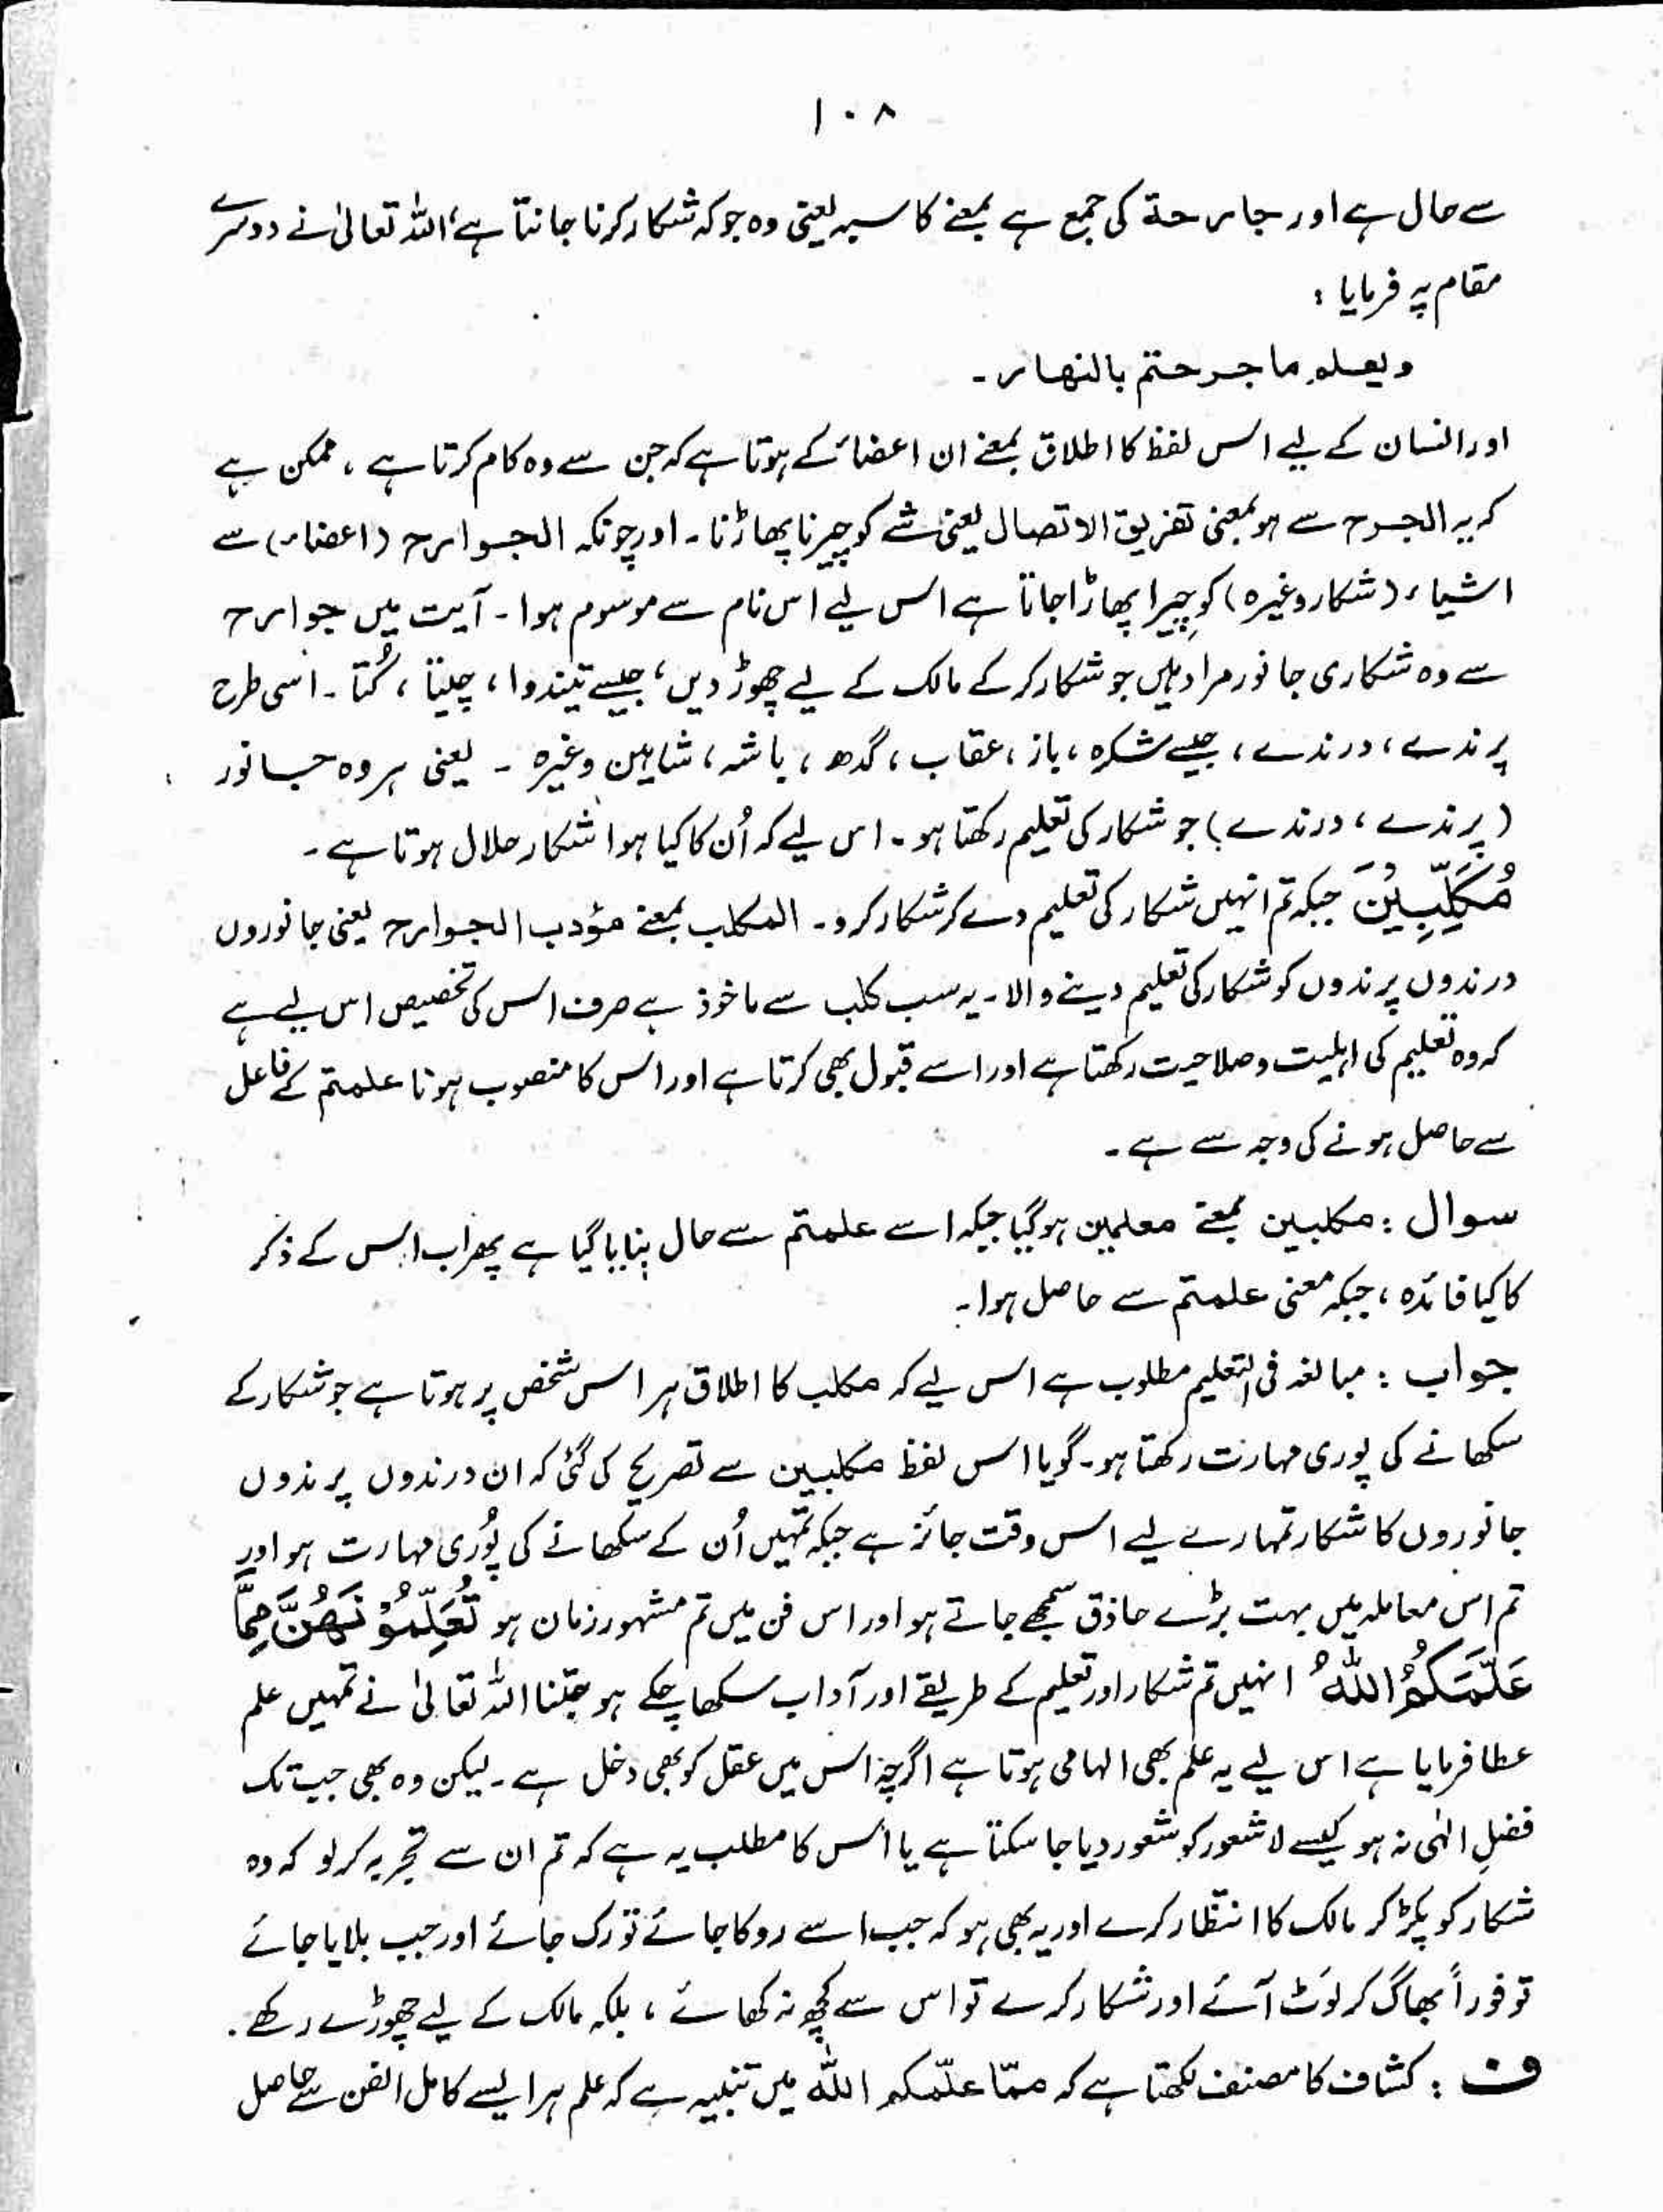 ۱۰۸
سے حال ہے اور جارحة کی جمع ہے بمعنے کاسبہ یعنی وہ جو کہ شکار کرنا جانتا ہے، اللہ تعالیٰ نے دوسرے
مقام پہ فرمایا :
ویعلم ما جرحتم بالنهار۔
اور انسان کے لیے اس لفظ کا اطلاق بمعنے ان اعضاء کے ہوتا ہے کہ جن سے وہ کام کرتا ہے ، ممکن ہے
کہ یہ الجرح سے ہو بمعنی تفریق الاتصال یعنی شے کو چیرنا پھاڑنا۔ اور چونکہ الجوارح (اعضاء) سے
اشیاء (شکار وغیرہ) کو چیرا پھاڑا جاتا ہے اس لیے اس نام سے موسوم ہوا۔ آیت میں جوارح
سے وہ شکاری جانور مراد ہیں جو شکار کر کے مالک کے لیے چھوڑ دیں، جیسے تیندوا ، چیتا ، کُتا۔ اسی طرح
پرندے ، درندے ، جیسے شکرہ ، باز ، عقاب ، گدھ ، باشہ ، شاہین وغیرہ ۔ یعنی ہر وہ جانور
(پرندے ، درندے) جو شکار کی تعلیم رکھتا ہو۔ اس لیے کہ اُن کا کیا ہوا شکار حلال ہوتا ہے۔
مُكَلِّبِيْنَ جبکہ تم انہیں شکار کی تعلیم دے کر شکار کرو۔ المکلب بمعنے مؤدب الجوارح یعنی جانوروں
درندوں پرندوں کو شکار کی تعلیم دینے والا۔ یہ سب کلب سے ماخوذ ہے صرف اس کی تخصیص اس لیے ہے
کہ وہ تعلیم کی اہلیت و صلاحیت رکھتا ہے اور اسے قبول بھی کرتا ہے اور اس کا منصوب ہونا علمتم کے فاعل
سے حاصل ہونے کی وجہ سے ہے۔
سوال : مکلبین بمعنے معلمین ہوگیا جبکہ اسے علمتم سے حال بنایا گیا ہے پھر اب اس کے ذکر
کا کیا فائدہ ، جبکہ معنی علمتم سے حاصل ہوا۔
جواب : مبالغہ فی التعلیم مطلوب ہے اس لیے کہ مکلب کا اطلاق ہر اس شخص پر ہوتا ہے جو شکار کے
سکھانے کی پوری مہارت رکھتا ہو۔ گویا اس لفظ مکلبین سے تصریح کی گئی کہ ان درندوں پرندوں
جانوروں کا شکار تمہارے لیے اس وقت جائز ہے جبکہ تمہیں اُن کے سکھانے کی پُوری مہارت ہو اور
تم اس معاملہ میں بہت بڑے حاذق سمجھے جاتے ہو اور اس فن میں تم مشہور زمان ہو تُعَلِّمُوْنَهُنَّ مِمَّا
عَلَّمَكُمُ اللّٰهُ انہیں تم شکار اور تعلیم کے طریقے اور آداب سکھا چکے ہو جتنا اللہ تعالیٰ نے تمہیں علم
عطا فرمایا ہے اس لیے یہ علم بھی الہامی ہوتا ہے اگرچہ اس میں عقل کو بھی دخل ہے۔ لیکن وہ بھی جب تک
فضلِ الٰہی نہ ہو کیسے لاشعور کو شعور دیا جا سکتا ہے یا اس کا مطلب یہ ہے کہ تم ان سے تجربہ کر لو کہ وہ
شکار کو پکڑ کر مالک کا انتظار کرے اور یہ بھی ہو کہ جب اسے روکا جائے تو رک جائے اور جب بلایا جائے
تو فوراً بھاگ کر لوٹ آئے اور شکار کرے تو اس سے کچھ نہ کھائے ، بلکہ مالک کے لیے چھوڑے رکھے۔
ف : کشاف کا مصنف لکھتا ہے کہ ممّا علّمکم اللّٰه میں تنبیہ ہے کہ علم ہر ایسے کامل الفن سے حاصل